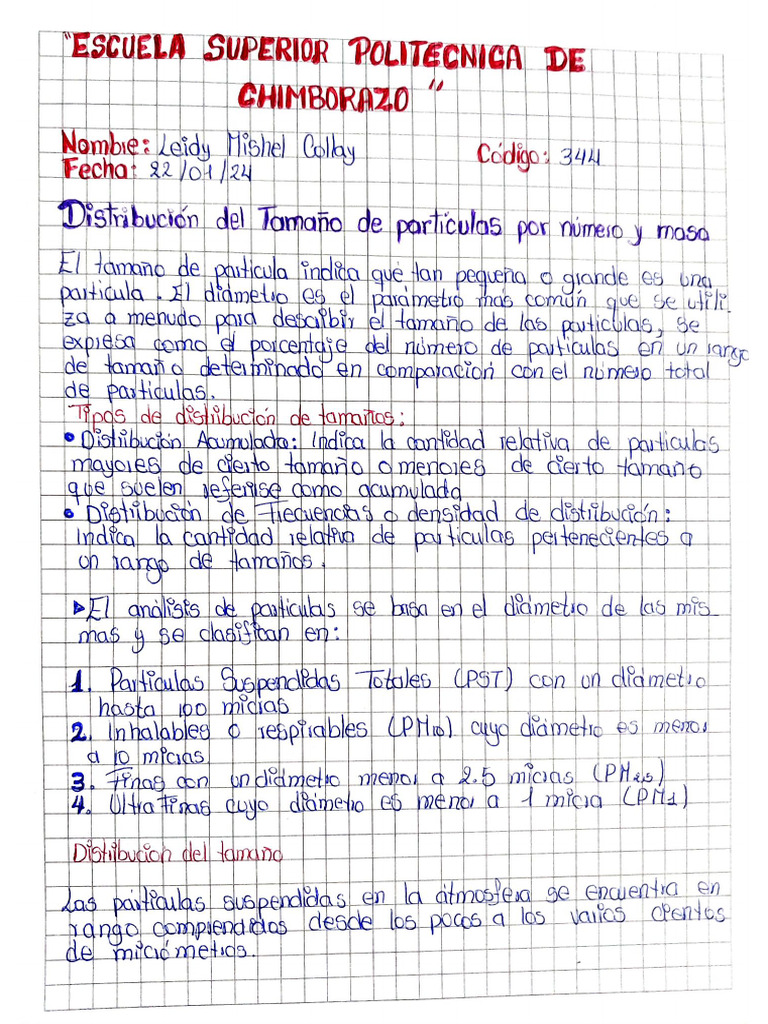 "ESCUELA SUPERIOR POLITECNICA DE
CHIMBORAZO"
Nombre: Leidy Mishel Collay Código: 344
Fecha: 22/01/24
Distribución del Tamaño de particulas por número y masa
El tamaño de particula indica qué tan pequeña o grande es una
particula. El diámetro es el parámetro más común que se utili
za a menudo para describir el tamaño de las particulas, se
expresa como el porcentaje del número de particulas en un rango
de tamaño determinado en comparación con el número total
de particulas.
Tipos de distribución de tamaños:
• Distribución Acumulada: Indica la cantidad relativa de particulas
mayores de cierto tamaño o menores de cierto tamaño
que suelen referirse como acumulada
• Distribución de Frecuencias o densidad de distribución:
Indica la cantidad relativa de particulas pertenecientes a
un rango de tamaños.
▶ El análisis de particulas se basa en el diámetro de las mis
mas y se clasifican en:
1. Particulas Suspendidas Totales (PST) con un diámetro
hasta 100 micras
2. Inhalables o respirables (PM10) cuyo diámetro es menor
a 10 micras
3. Finas con un diámetro menor a 2.5 micras (PM2,5)
4. Ultra Finas cuyo diámetro es menor a 1 micra (PM1)
Distribucion del tamaño
Las particulas suspendidas en la átmosfera se encuentra en
rango comprendidos desde los pocos a los varios cientos
de micrómetros.